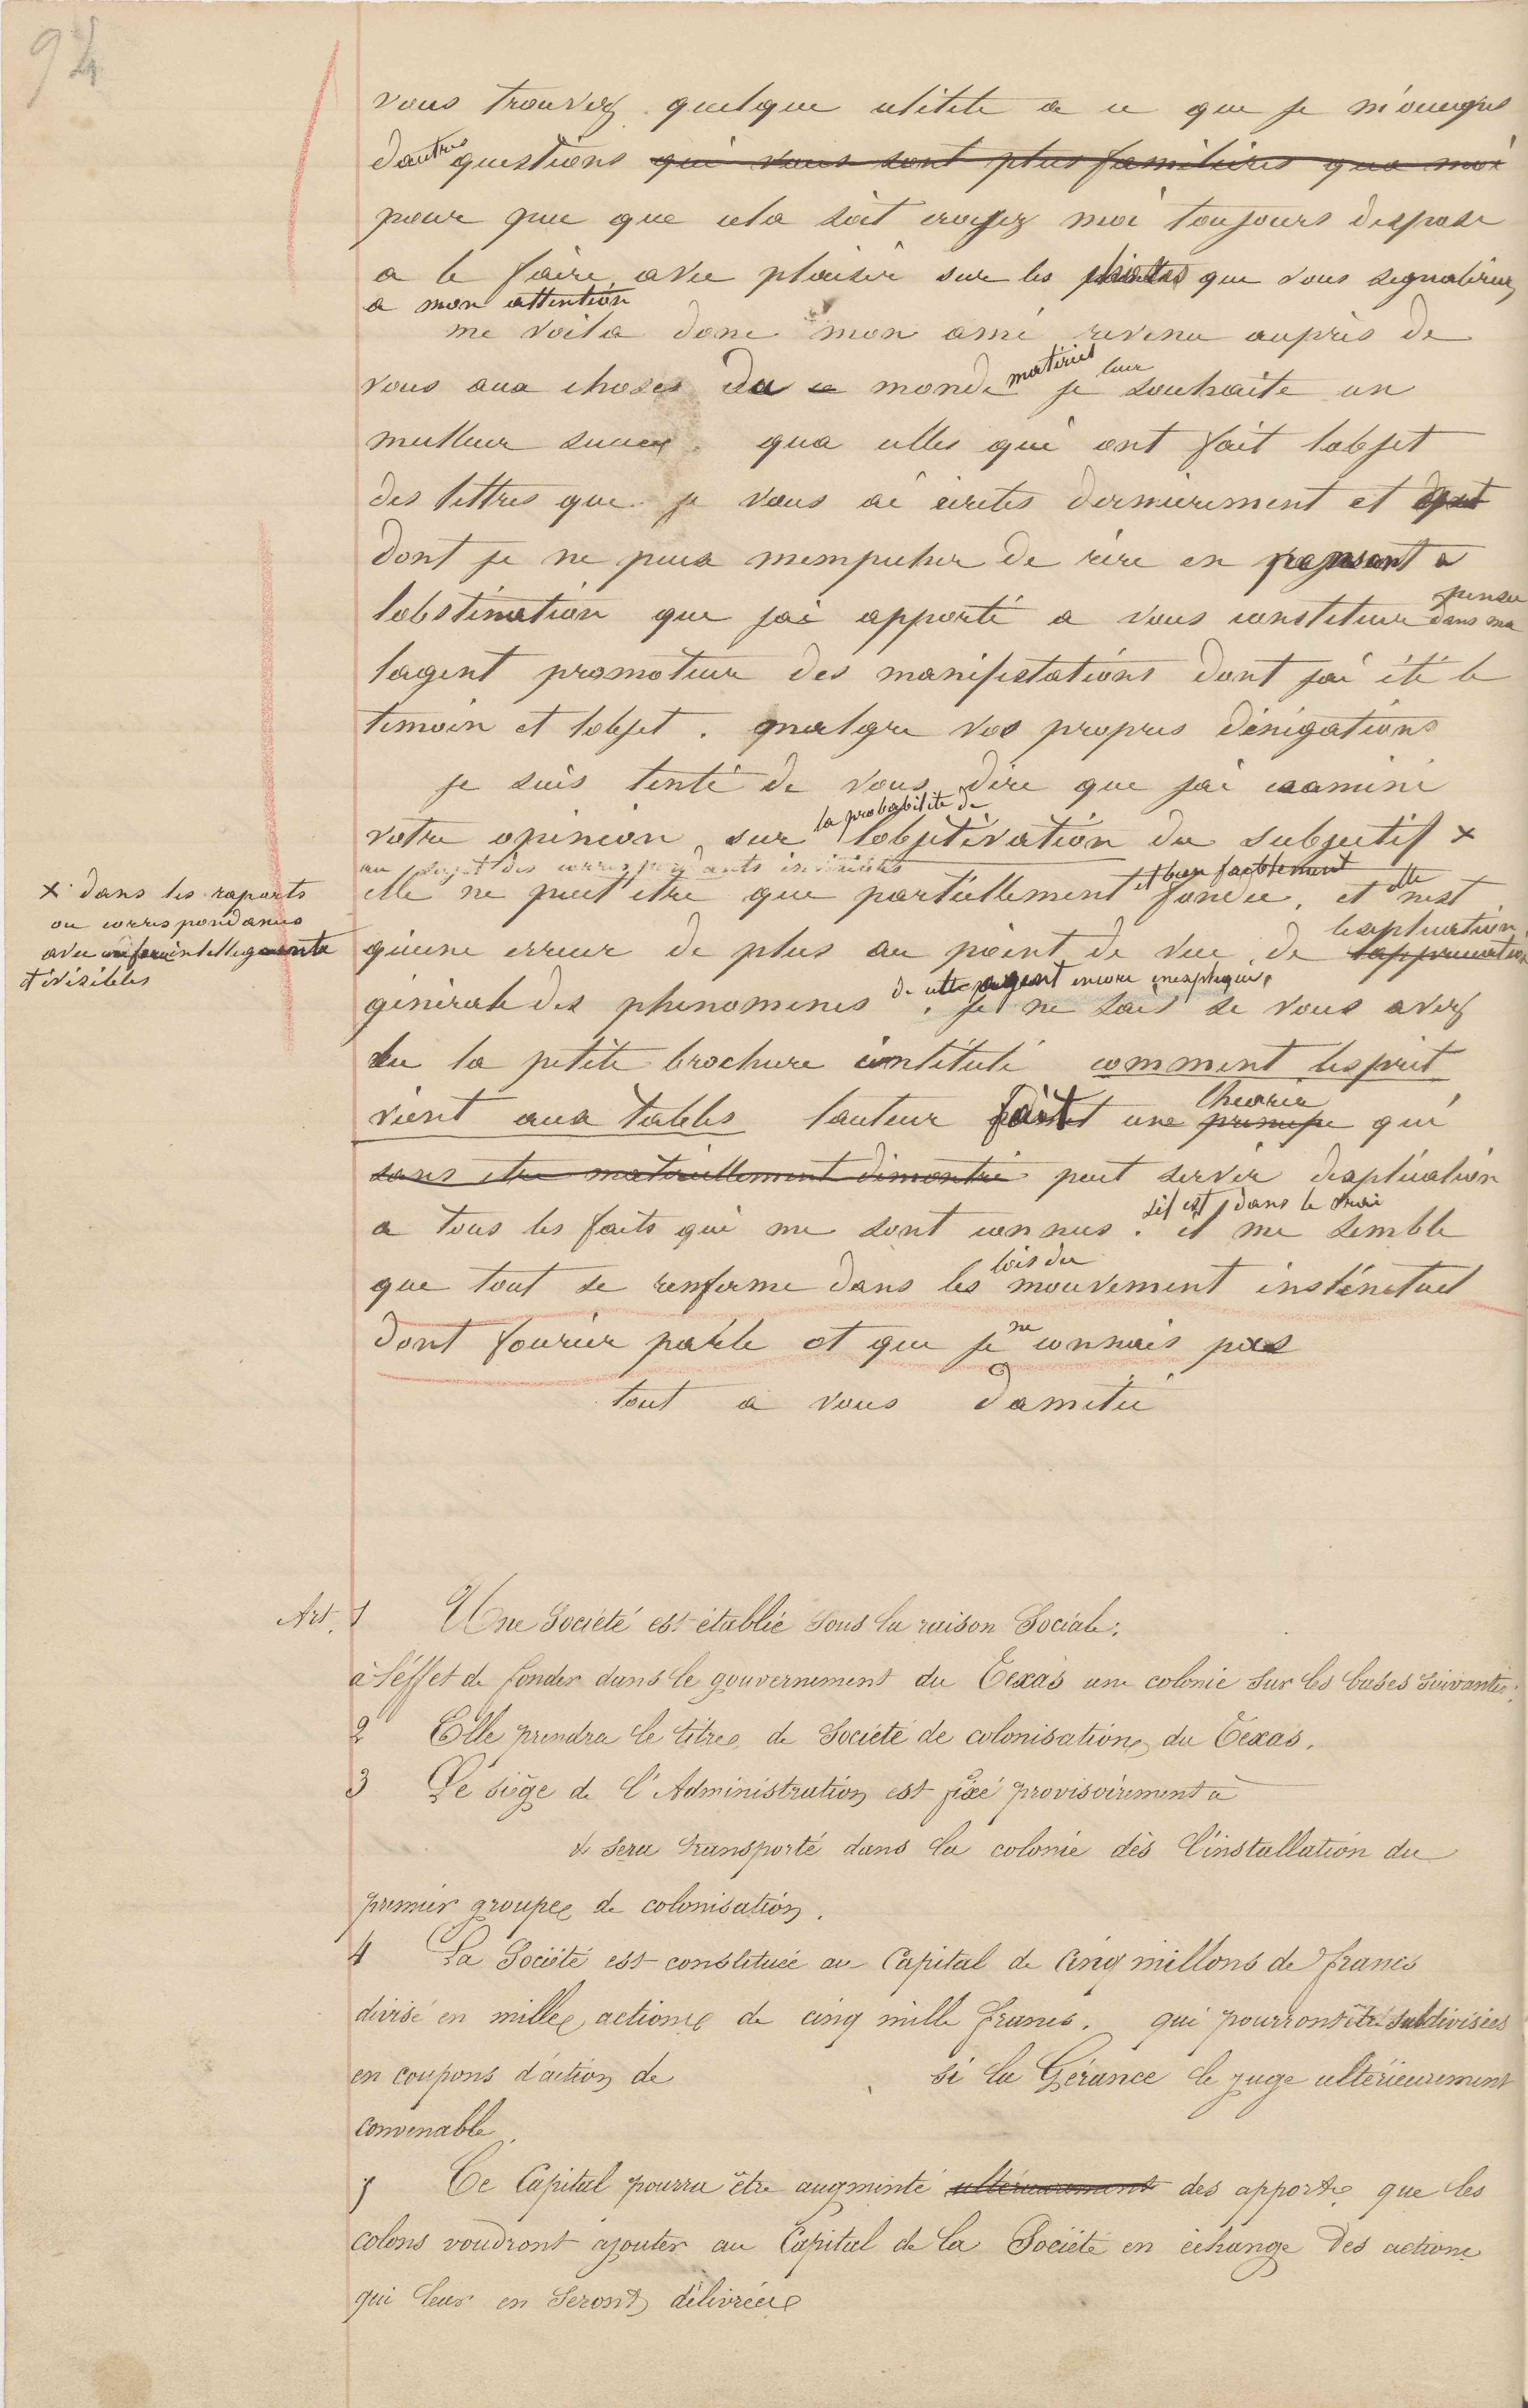 94
vous trouvez quelque utilite a ce que je m'occupes
dautres questions qui vous sont plus familières qua moi
pour peu que cela soit croyez moi toujours disposé
a le faire avec plaisir sur les que vous signalerez
a mon attention
me voila donc mon ami revenu auprès de
vous aux choses du ce monde matériel je leur souhaite un
meilleur succes qua celles qui ont fait lobjet
des lettres que je vous ai écrites dernièrement et
dont je ne puis mempecher de rire en pensant a
lobstination que jai apporté a vous constituer dans ma pensée
lagent promoteur des manifestations dont jai été le
temoin et lobjet. malgre vos propres dénégations
je suis tenté de vous dire que jai examiné
votre opinion sur la probabilite de lobjetivation du subjectif x
au sujet des correspondants invisibles
elle ne peut etre que partiellement et bien faiblement fondée, et elle nest
x dans les raports
ou correspondances
avec intelligente
et visibles
quune erreur de plus au point de vue de lapreciation lexplication
générale des phenomenes de cette agent encore inexpliqué. je ne sais si vous avez
lu la petite brochure intitulé comment lesprit
vient aux tables lauteur fait une principe théorie qui
sans etre materiellement démontré peut servir dexplication
a tous les faits qui me sont connus. sil est dans le vrai il me semble
que tout se renferme dans les lois du mouvement instinctuel
dont fourier parle et que je ne connais pas
tout a vous damitié
Art. 1 Une Société est établie sous la raison Sociale:
à l'éffet de fonder dans le gouvernement du Texas une colonie sur les bases suivantes:
2 Elle prendra le titre de Société de colonisation du Texas.
3 Le siège de l'Administration est fixé provisoirement à
& sera transporté dans la colonie dès l'installation du
premier groupe de colonisation.
4 La Société est constituée au Capital de Cinq millons de francs
divisé en mille actions de cinq mille francs. qui pourront être subdivisées
en coupons d'action de si la Gérance le juge ultérieurement
convenable.
5 Ce Capital pourra être augmenté ultérieurement des apports que les
colons voudront ajouter au Capital de la Société en échange des actions
qui leur en seront délivrées